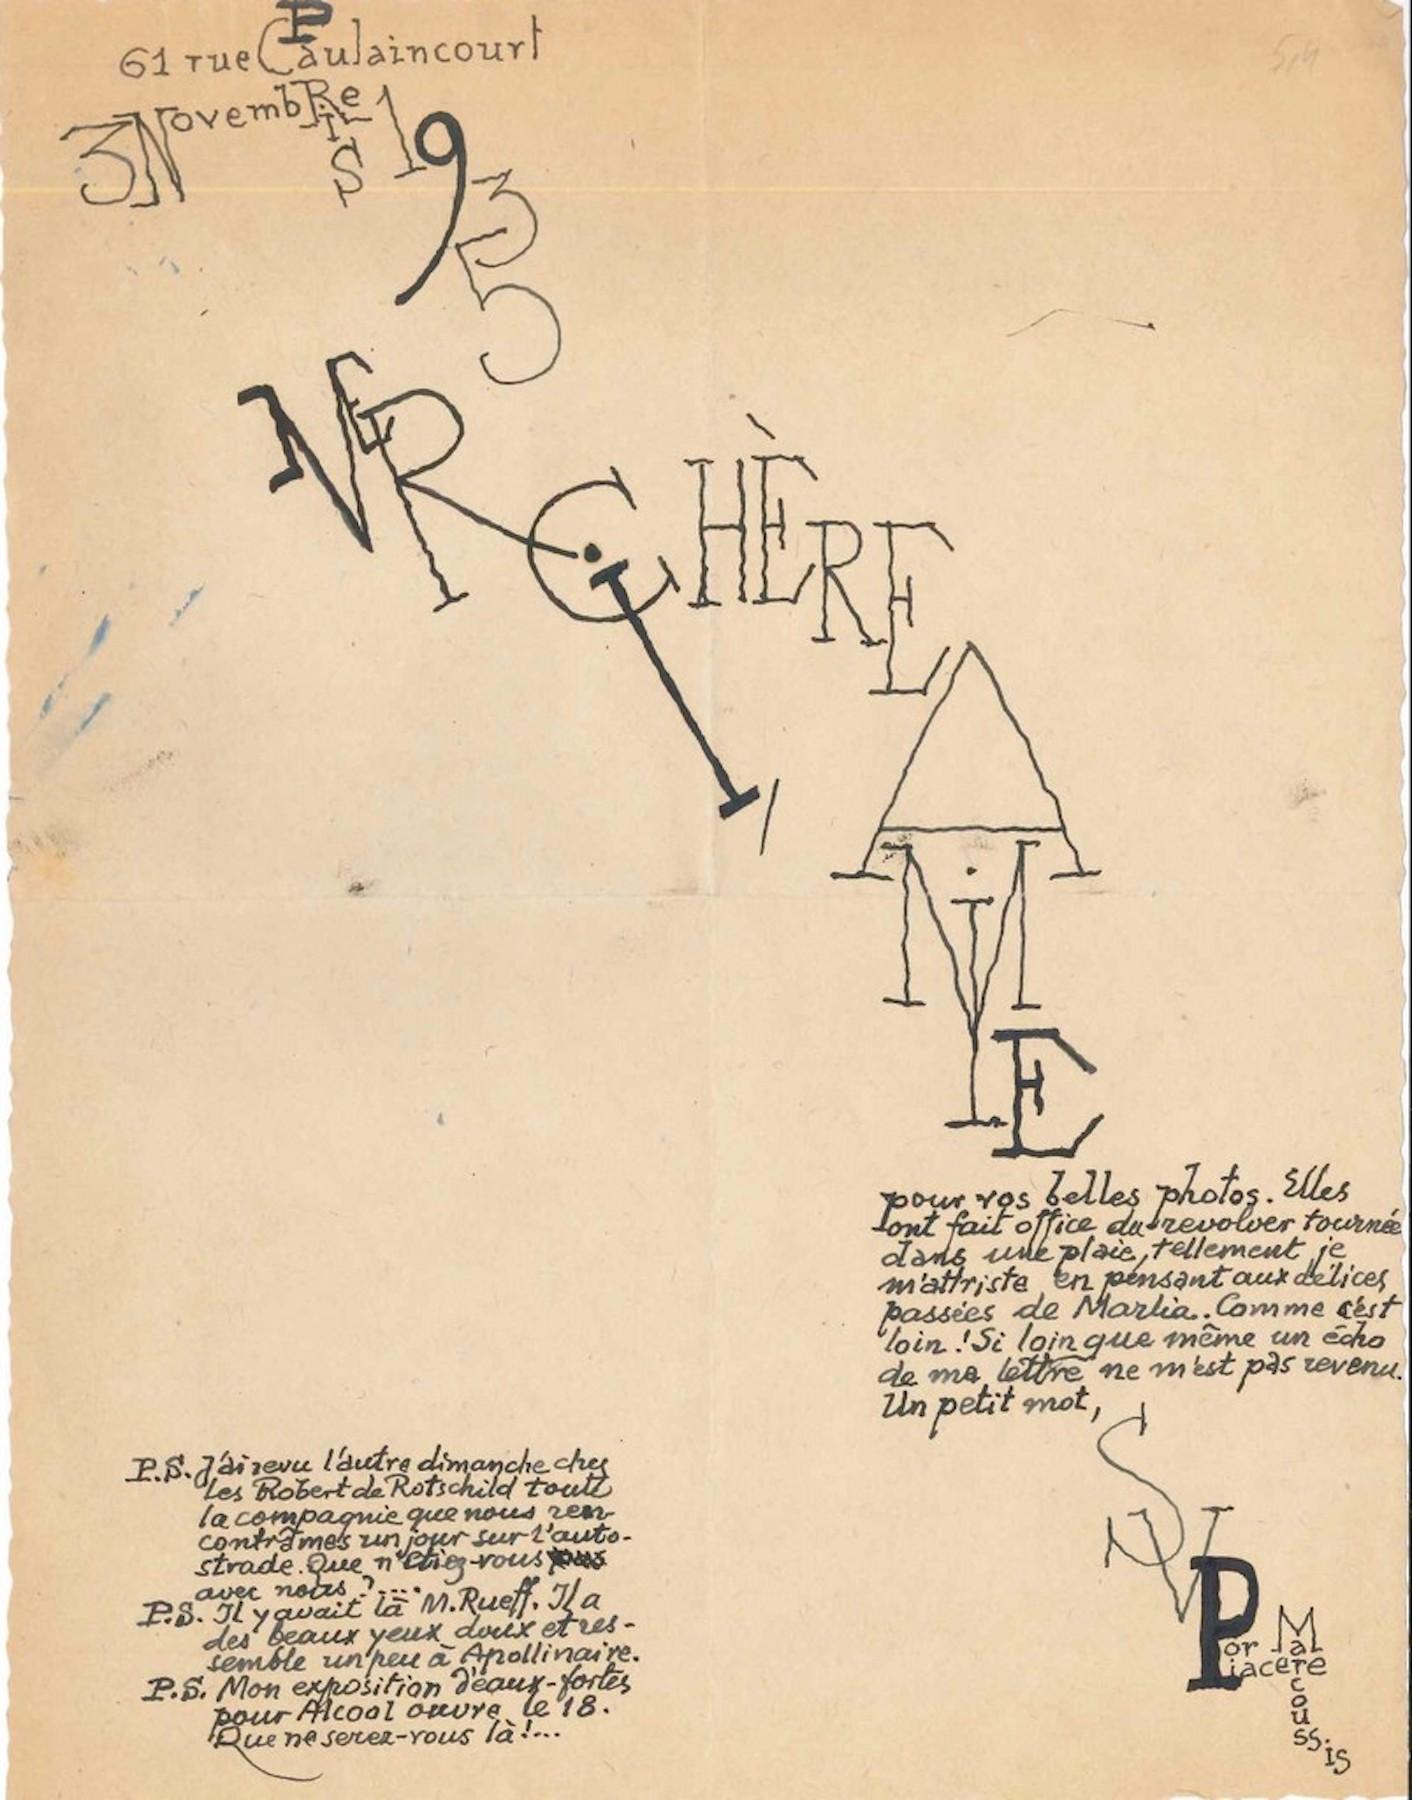 61 rue Caulaincourt
Paris
3 Novembre 1935
MERCI, CHÈRE
AMIE
pour vos belles photos. Elles
ont fait office du revolver tournée
dans une plaie, tellement je
m'attriste en pensant aux délices
passées de Marlia. Comme c'est
loin ! Si loin que même un écho
de ma lettre ne m'est pas revenu.
Un petit mot,
SVP
Por Piacere
Marcoussis
P.S. J'ai revu l'autre dimanche chez
les Robert de Rotschild toute
la compagnie que nous ren-
contrâmes un jour sur l'auto-
strade. Que n'étiez-vous
avec nous ?....
P.S. Il y avait là M. Rueff. Il a
des beaux yeux doux et res-
semble un peu à Apollinaire.
P.S. Mon exposition d'eaux-fortes
pour Alcool ouvre le 18.
Que ne serez-vous là !...